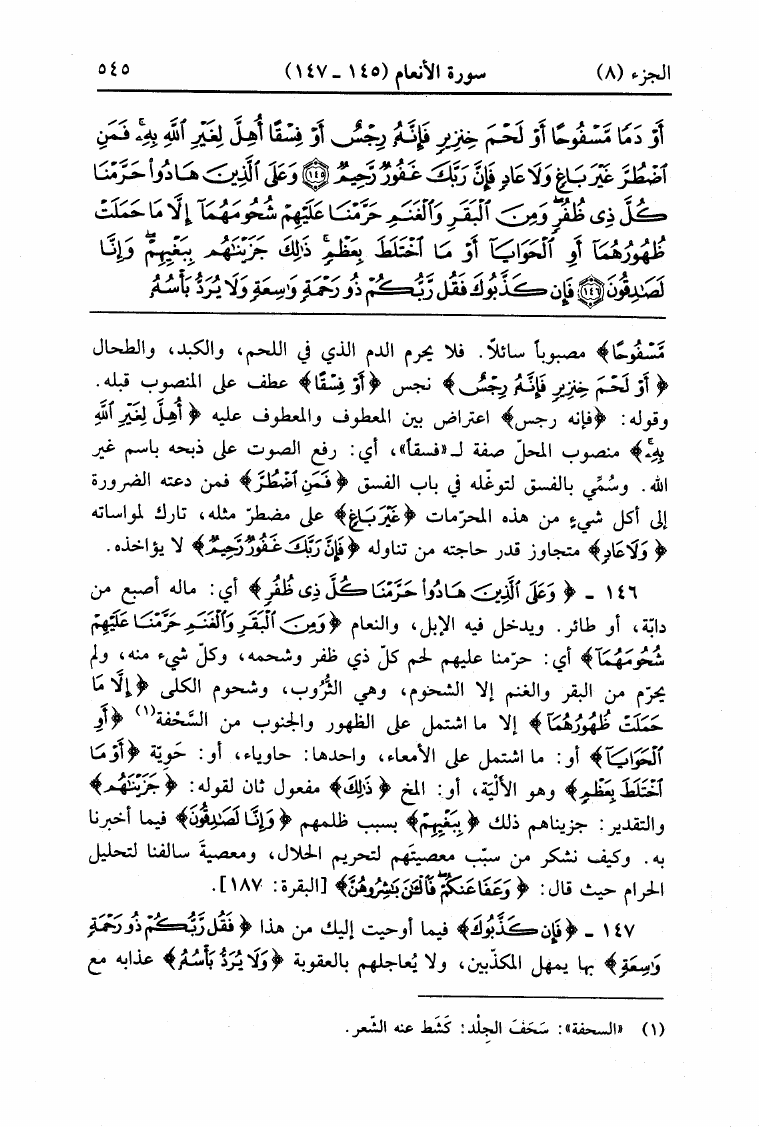 الجزء (٨) سورة الأنعام (١٤٥ - ١٤٧) ٥٤٥
أَوْ دَمًا مَّسْفُوحًا أَوْ لَحْمَ خِنزِيرٍ فَإِنَّهُۥ رِجْسٌ أَوْ فِسْقًا أُهِلَّ لِغَيْرِ ٱللَّهِ بِهِۦۚ فَمَنِ
ٱضْطُرَّ غَيْرَ بَاغٍ وَلَا عَادٍ فَإِنَّ رَبَّكَ غَفُورٌ رَّحِيمٌ ﴿١٤٥﴾ وَعَلَى ٱلَّذِينَ هَادُوا۟ حَرَّمْنَا
كُلَّ ذِى ظُفُرٍۖ وَمِنَ ٱلْبَقَرِ وَٱلْغَنَمِ حَرَّمْنَا عَلَيْهِمْ شُحُومَهُمَآ إِلَّا مَا حَمَلَتْ
ظُهُورُهُمَآ أَوِ ٱلْحَوَايَآ أَوْ مَا ٱخْتَلَطَ بِعَظْمٍۚ ذَٰلِكَ جَزَيْنَٰهُم بِبَغْيِهِمْۖ وَإِنَّا
لَصَٰدِقُونَ ﴿١٤٦﴾ فَإِن كَذَّبُوكَ فَقُل رَّبُّكُمْ ذُو رَحْمَةٍ وَٰسِعَةٍ وَلَا يُرَدُّ بَأْسُهُۥ
مَّسْفُوحًا﴾ مصبوباً سائلاً. فلا يحرم الدم الذي في اللحم، والكبد، والطحال
﴿أَوْ لَحْمَ خِنزِيرٍ فَإِنَّهُۥ رِجْسٌ﴾ نجس ﴿أَوْ فِسْقًا﴾ عطف على المنصوب قبله.
وقوله: ﴿فإنه رجس﴾ اعتراض بين المعطوف والمعطوف عليه ﴿أُهِلَّ لِغَيْرِ ٱللَّهِ
بِهِۦۚ﴾ منصوب المحلّ صفة لـ«فسقاً»، أي: رفع الصوت على ذبحه باسم غير
الله. وسُمِّي بالفسق لتوغّله في باب الفسق ﴿فَمَنِ ٱضْطُرَّ﴾ فمن دعته الضرورة
إلى أكل شيءٍ من هذه المحرّمات ﴿غَيْرَ بَاغٍ﴾ على مضطرّ مثله، تارك لمواساته
﴿وَلَا عَادٍ﴾ متجاوز قدر حاجته من تناوله ﴿فَإِنَّ رَبَّكَ غَفُورٌ رَّحِيمٌ﴾ لا يؤاخذه.
١٤٦ - ﴿وَعَلَى ٱلَّذِينَ هَادُوا۟ حَرَّمْنَا كُلَّ ذِى ظُفُرٍ﴾ أي: ماله أصبع من
دابّة، أو طائر. ويدخل فيه الإبل، والنعام ﴿وَمِنَ ٱلْبَقَرِ وَٱلْغَنَمِ حَرَّمْنَا عَلَيْهِمْ
شُحُومَهُمَآ﴾ أي: حرّمنا عليهم لحم كلّ ذي ظفر وشحمه، وكلّ شيء منه، ولم
يحرّم من البقر والغنم إلا الشحوم، وهي الثُّرُوب، وشحوم الكلى ﴿إِلَّا مَا
حَمَلَتْ ظُهُورُهُمَآ﴾ إلا ما اشتمل على الظهور والجنوب من السَّحْفة(١) ﴿أَوِ
ٱلْحَوَايَآ﴾ أو: ما اشتمل على الأمعاء، واحدها: حاوياء، أو: حَوِيّة ﴿أَوْ مَا
ٱخْتَلَطَ بِعَظْمٍ﴾ وهو الألْيَة، أو: المخ ﴿ذَٰلِكَ﴾ مفعول ثان لقوله: ﴿جَزَيْنَٰهُم﴾
والتقدير: جزيناهم ذلك ﴿بِبَغْيِهِمْ﴾ بسبب ظلمهم ﴿وَإِنَّا لَصَٰدِقُونَ﴾ فيما أخبرنا
به. وكيف نشكر من سبّب معصيتَهم لتحريم الحلال، ومعصيةَ سالفنا لتحليل
الحرام حيث قال: ﴿وَعَفَا عَنكُمْۖ فَٱلْـَٰٔنَ بَٰشِرُوهُنَّ﴾ [البقرة: ١٨٧].
١٤٧ - ﴿فَإِن كَذَّبُوكَ﴾ فيما أوحيت إليك من هذا ﴿فَقُل رَّبُّكُمْ ذُو رَحْمَةٍ
وَٰسِعَةٍ﴾ بها يمهل المكذّبين، ولا يُعاجلهم بالعقوبة ﴿وَلَا يُرَدُّ بَأْسُهُۥ﴾ عذابه مع
(١) «السحفة»: سَحَفَ الجِلْد: كَشَط عنه الشّعر.